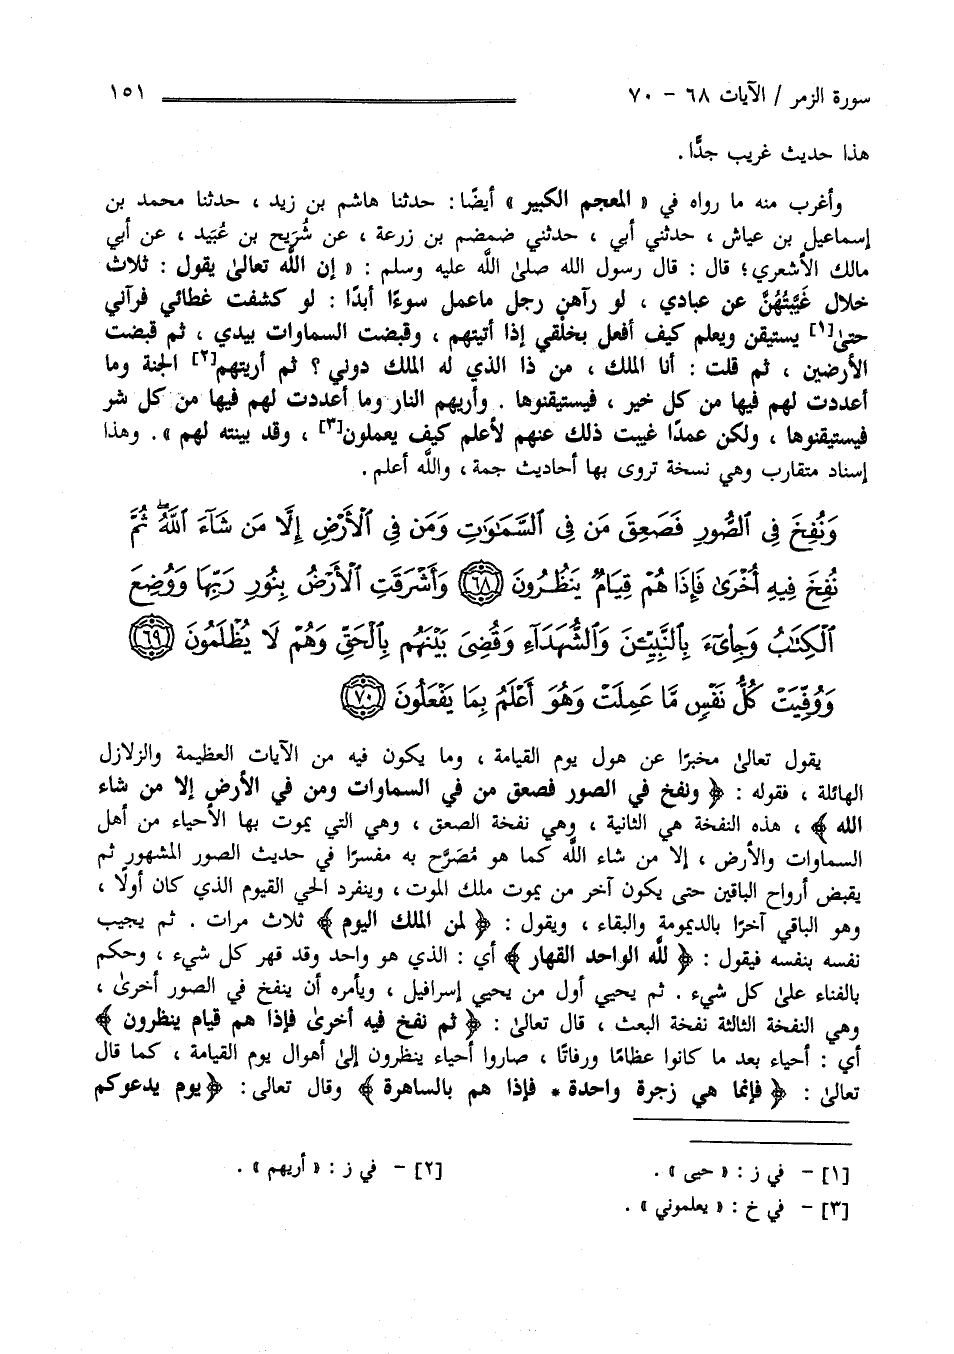 سورة الزمر / الآيات ٦٨ - ٧٠ ١٥١
هذا حديث غريب جدًّا .
وأغرب منه ما رواه في « المعجم الكبير » أيضًا : حدثنا هاشم بن زيد ، حدثنا محمد بن
إسماعيل بن عياش ، حدثني أبي ، حدثني ضمضم بن زرعة ، عن شُرَيح بن عُبَيد ، عن أبي
مالك الأشعري؛ قال : قال رسول الله صلىٰ اللَّه عليه وسلم : « إن اللَّه تعالىٰ يقول : ثلاث
خلال غَيَّبْتُهُنَّ عن عبادي ، لو رآهن رجل ماعمل سوءًا أبدًا : لو كشفت غطائي فرآني
حتىٰ[١] يستيقن ويعلم كيف أفعل بخلْقي إذا أتيتهم ، وقبضت السماوات بيدي ، ثم قبضت
الأرضين ، ثم قلت : أنا الملك ، من ذا الذي له الملك دوني ؟ ثم أريتهم[٢] الجنة وما
أعددت لهم فيها من كل خير ، فيستيقنوها . وأريهم النار وما أعددت لهم فيها من كل شر
فيستيقنوها ، ولكن عمدًا غيبت ذلك عنهم لأعلم كيف يعملون[٣] ، وقد بينته لهم » . وهذا
إسناد متقارب وهي نسخة تروى بها أحاديث جمة ، واللَّه أعلم .
وَنُفِخَ فِى ٱلصُّورِ فَصَعِقَ مَن فِى ٱلسَّمَـٰوَٰتِ وَمَن فِى ٱلْأَرْضِ إِلَّا مَن شَآءَ ٱللَّهُ ۖ ثُمَّ
نُفِخَ فِيهِ أُخْرَىٰ فَإِذَا هُمْ قِيَامٌ يَنظُرُونَ ﴿٦٨﴾ وَأَشْرَقَتِ ٱلْأَرْضُ بِنُورِ رَبِّهَا وَوُضِعَ
ٱلْكِتَـٰبُ وَجِا۟ىٓءَ بِٱلنَّبِيِّـۧنَ وَٱلشُّهَدَآءِ وَقُضِىَ بَيْنَهُم بِٱلْحَقِّ وَهُمْ لَا يُظْلَمُونَ ﴿٦٩﴾
وَوُفِّيَتْ كُلُّ نَفْسٍ مَّا عَمِلَتْ وَهُوَ أَعْلَمُ بِمَا يَفْعَلُونَ ﴿٧٠﴾
يقول تعالىٰ مخبرًا عن هول يوم القيامة ، وما يكون فيه من الآيات العظيمة والزلازل
الهائلة ، فقوله : ﴿ ونفخ في الصور فصعق من في السماوات ومن في الأرض إلا من شاء
الله ﴾ ، هذه النفخة هي الثانية ، وهي نفخة الصعق ، وهي التي يموت بها الأحياء من أهل
السماوات والأرض ، إلا من شاء اللَّه كما هو مُصَرَّح به مفسرًا في حديث الصور المشهور ثم
يقبض أرواح الباقين حتى يكون آخر من يموت ملك الموت ، وينفرد الحي القيوم الذي كان أولًا ،
وهو الباقي آخرًا بالديمومة والبقاء ، ويقول : ﴿ لمن الملك اليوم ﴾ ثلاث مرات . ثم يجيب
نفسه بنفسه فيقول : ﴿ للَّه الواحد القهار ﴾ أي : الذي هو واحد وقد قهر كل شيء ، وحكم
بالفناء علىٰ كل شيء . ثم يحيي أول من يحيي إسرافيل ، ويأمره أن ينفخ في الصور أخرىٰ ،
وهي النفخة الثالثة نفخة البعث ، قال تعالىٰ : ﴿ ثم نفخ فيه أخرىٰ فإذا هم قيام ينظرون ﴾
أي : أحياء بعد ما كانوا عظامًا ورفاتًا ، صاروا أحياء ينظرون إلىٰ أهوال يوم القيامة ، كما قال
تعالىٰ : ﴿ فإنما هي زجرة واحدة * فإذا هم بالساهرة ﴾ وقال تعالى : ﴿ يوم يدعوكم
[١] - في ز : « حيى » . [٢] - في ز : « أريهم » .
[٣] - في خ : « يعلموني » .